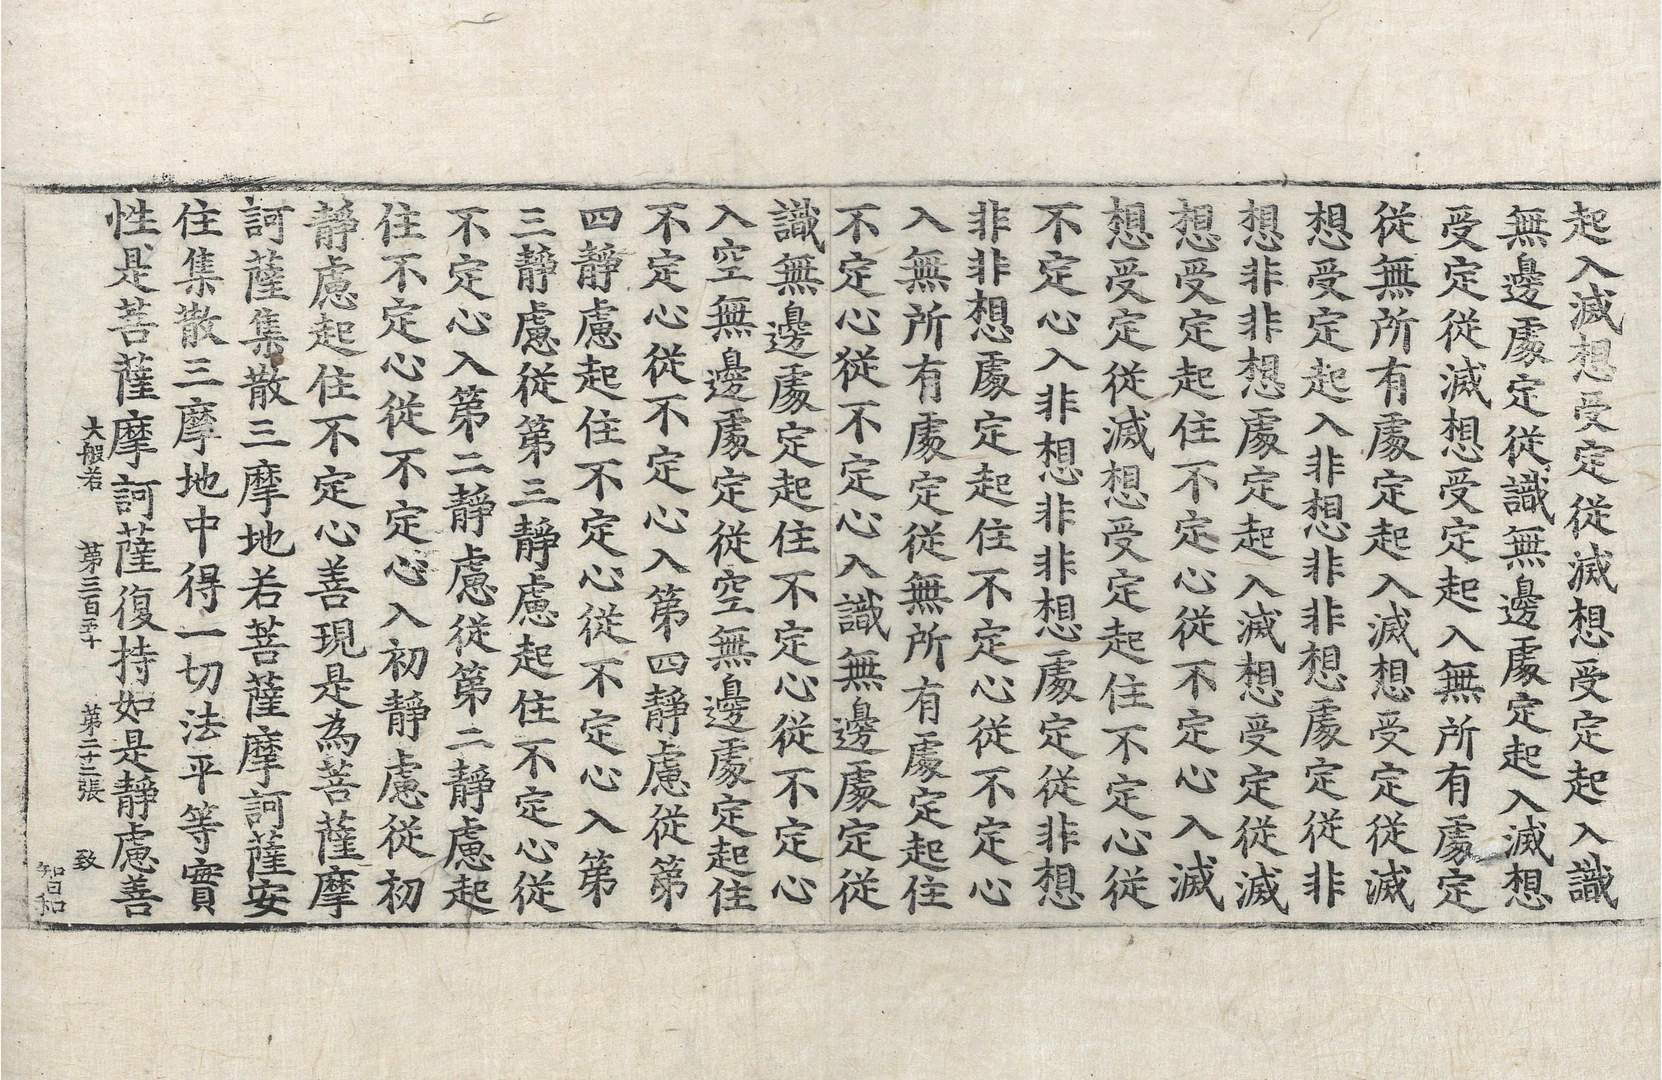 起入滅想受定從滅想受定起入識
無邊處定從識無邊處定起入滅想
受定從滅想受定起入無所有處定
從無所有處定起入滅想受定從滅
想受定起入非想非非想處定從非
想非非想處定起入滅想受定從滅
想受定起住不定心從不定心入滅
想受定從滅想受定起住不定心從
不定心入非想非非想處定從非想
非非想處定起住不定心從不定心
入無所有處定從無所有處定起住
不定心從不定心入識無邊處定從
識無邊處定起住不定心從不定心
入空無邊處定從空無邊處定起住
不定心從不定心入第四靜慮從第
四靜慮起住不定心從不定心入第
三靜慮從第三靜慮起住不定心從
不定心入第二靜慮從第二靜慮起
住不定心從不定心入初靜慮從初
靜慮起住不定心善現是為菩薩摩
訶薩集散三摩地若菩薩摩訶薩安
住集散三摩地中得一切法平等實
性是菩薩摩訶薩復持如是靜慮善
大般若 第三百五十 第二十二張 致
知和